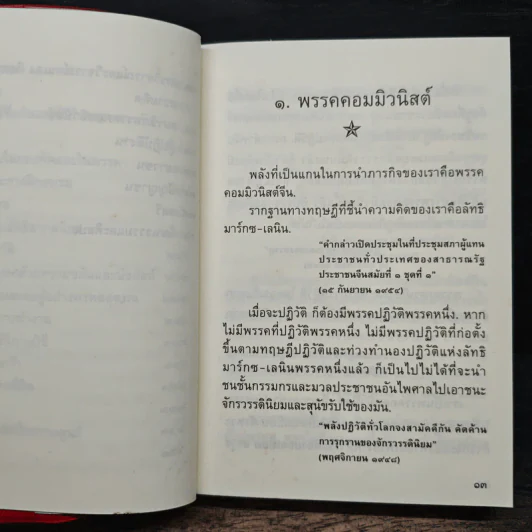 ๑. พรรคคอมมิวนิสต์
พลังที่เป็นแกนในการนำภารกิจของเราคือพรรค
คอมมิวนิสต์จีน.
รากฐานทางทฤษฎีที่ชี้นำความคิดของเราคือลัทธิ
มาร์กซ-เลนิน.
"คำกล่าวเปิดประชุมในที่ประชุมสภาผู้แทน
ประชาชนทั่วประเทศของสาธารณรัฐ
ประชาชนจีนสมัยที่ ๑ ชุดที่ ๑"
(๑๕ กันยายน ๑๙๕๔)
เมื่อจะปฏิวัติ ก็ต้องมีพรรคปฏิวัติพรรคหนึ่ง. หาก
ไม่มีพรรคที่ปฏิวัติพรรคหนึ่ง ไม่มีพรรคปฏิวัติที่ก่อตั้ง
ขึ้นตามทฤษฎีปฏิวัติและท่วงทำนองปฏิวัติแห่งลัทธิ
มาร์กซ-เลนินพรรคหนึ่งแล้ว ก็เป็นไปไม่ได้ที่จะนำ
ชนชั้นกรรมกรและมวลประชาชนอันไพศาลไปเอาชนะ
จักรวรรดินิยมและสุนัขรับใช้ของมัน.
"พลังปฏิวัติทั่วโลกจงสามัคคีกัน คัดค้าน
การรุกรานของจักรวรรดินิยม"
(พฤศจิกายน ๑๙๔๘)
๑๓